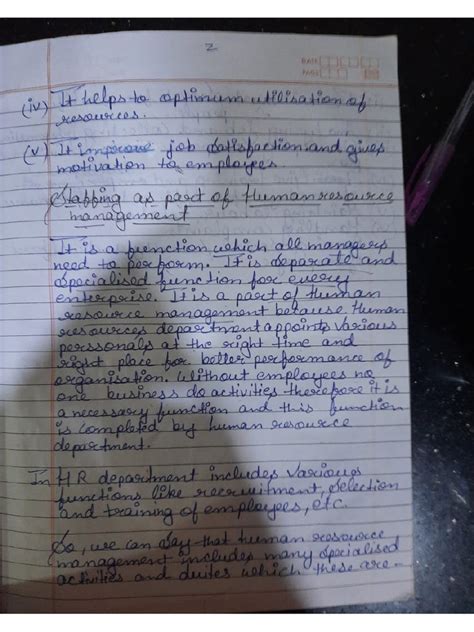 2
DATE
PAGE
(iv) It helps to optimum utilisation of
resources.
(v) It improve job satisfaction and gives
motivation to employees.
Staffing as part of Human resource
management
It is a function which all managers
need to perform. It is separate and
specialised function for every
enterprise. It is a part of Human
resource management because Human
resources department appoints various
perssonals at the right time and
right place for better performance of
organisation. Without employees no
one business do activities therefore it is
a necessary function and this function
is completed by human resource
department.
In HR department includes various
functions like recruitment, selection
and training of employees, etc.
So, we can say that human resource
management includes many specialised
activities and duites which these are -